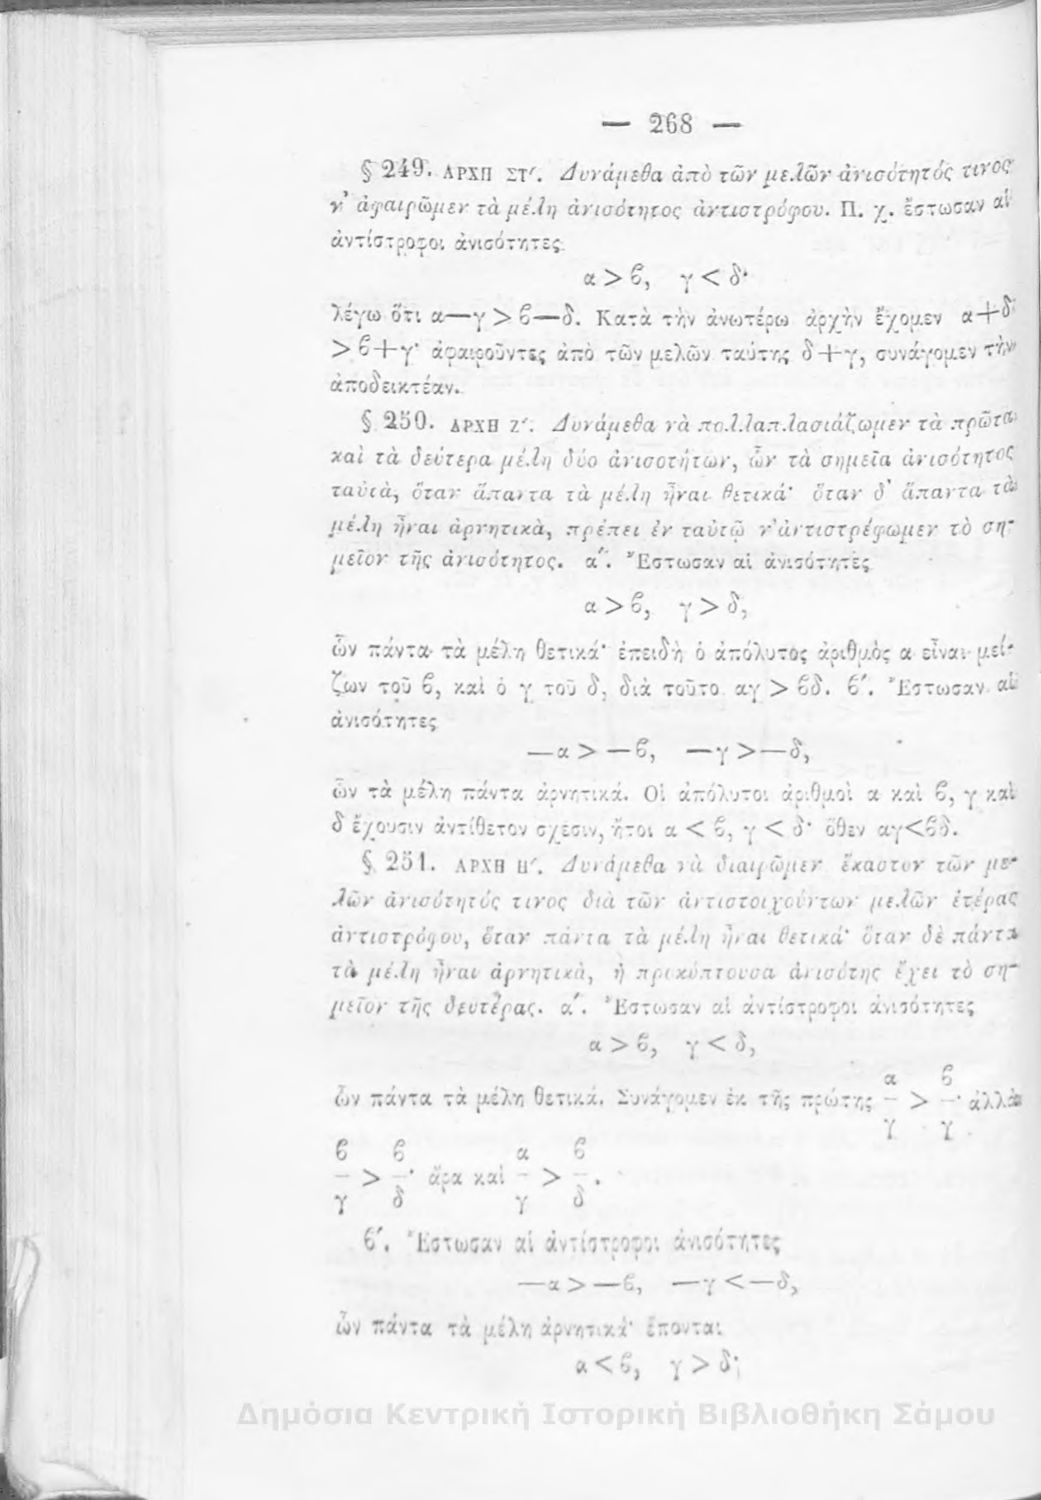 — 268 —
§ 249. ΑΡΧΗ ΣΤ΄. Δυνάμεθα ἀπὸ τῶν μελῶν ἀνισότητός τινος
ν' ἀφαιρῶμεν τὰ μέλη ἀνισότητος ἀντιστρόφου. Π. χ. ἔστωσαν αἱ
ἀντίστροφοι ἀνισότητες
α > ϐ, γ < δ·
λέγω ὅτι α—γ > ϐ—δ. Κατὰ τὴν ἀνωτέρω ἀρχὴν ἔχομεν α+δ
> ϐ+γ· ἀφαιροῦντες ἀπὸ τῶν μελῶν ταύτης δ+γ, συνάγομεν τὴν
ἀποδεικτέαν.
§ 250. ΑΡΧΗ Ζ΄. Δυνάμεθα νὰ πολλαπλασιάζωμεν τὰ πρῶτα
καὶ τὰ δεύτερα μέλη δύο ἀνισοτήτων, ὧν τὰ σημεῖα ἀνισότητος
ταὐτὰ, ὅταν ἅπαντα τὰ μέλη ἦναι θετικά· ὅταν δ' ἅπαντα τὰ
μέλη ἦναι ἀρνητικὰ, πρέπει ἐν ταὐτῷ ν' ἀντιστρέφωμεν τὸ ση-
μεῖον τῆς ἀνισότητος. α΄. Ἔστωσαν αἱ ἀνισότητες
α > ϐ, γ > δ,
ὧν πάντα τὰ μέλη θετικά· ἐπειδὴ ὁ ἀπόλυτος ἀριθμὸς α εἶναι μεί-
ζων τοῦ ϐ, καὶ ὁ γ τοῦ δ, διὰ τοῦτο αγ > ϐδ. ϐ΄. Ἔστωσαν αἱ
ἀνισότητες
—α > —ϐ, —γ > —δ,
ὧν τὰ μέλη πάντα ἀρνητικά. Οἱ ἀπόλυτοι ἀριθμοὶ α καὶ ϐ, γ καὶ
δ ἔχουσιν ἀντίθετον σχέσιν, ἤτοι α < ϐ, γ < δ· ὅθεν αγ<ϐδ.
§ 251. ΑΡΧΗ Η΄. Δυνάμεθα νὰ διαιρῶμεν ἕκαστον τῶν με-
λῶν ἀνισότητός τινος διὰ τῶν ἀντιστοιχούντων μελῶν ἑτέρας
ἀντιστρόφου, ὅταν πάντα τὰ μέλη ἦναι θετικά· ὅταν δὲ πάντα
τὰ μέλη ἦναι ἀρνητικὰ, ἡ προκύπτουσα ἀνισότης ἔχει τὸ ση-
μεῖον τῆς δευτέρας. α΄. Ἔστωσαν αἱ ἀντίστροφοι ἀνισότητες
α > ϐ, γ < δ,
α ϐ
ὧν πάντα τὰ μέλη θετικά. Συνάγομεν ἐκ τῆς πρώτης — > —· ἀλλὰ
γ γ
ϐ ϐ α ϐ
— > —· ἄρα καὶ — > —.
γ δ γ δ
ϐ΄. Ἔστωσαν αἱ ἀντίστροφοι ἀνισότητες
—α > —ϐ, —γ < —δ,
ὧν πάντα τὰ μέλη ἀρνητικά· ἕπονται
α < ϐ, γ > δ·
Δημόσια Κεντρική Ιστορική Βιβλιοθήκη Σάμου